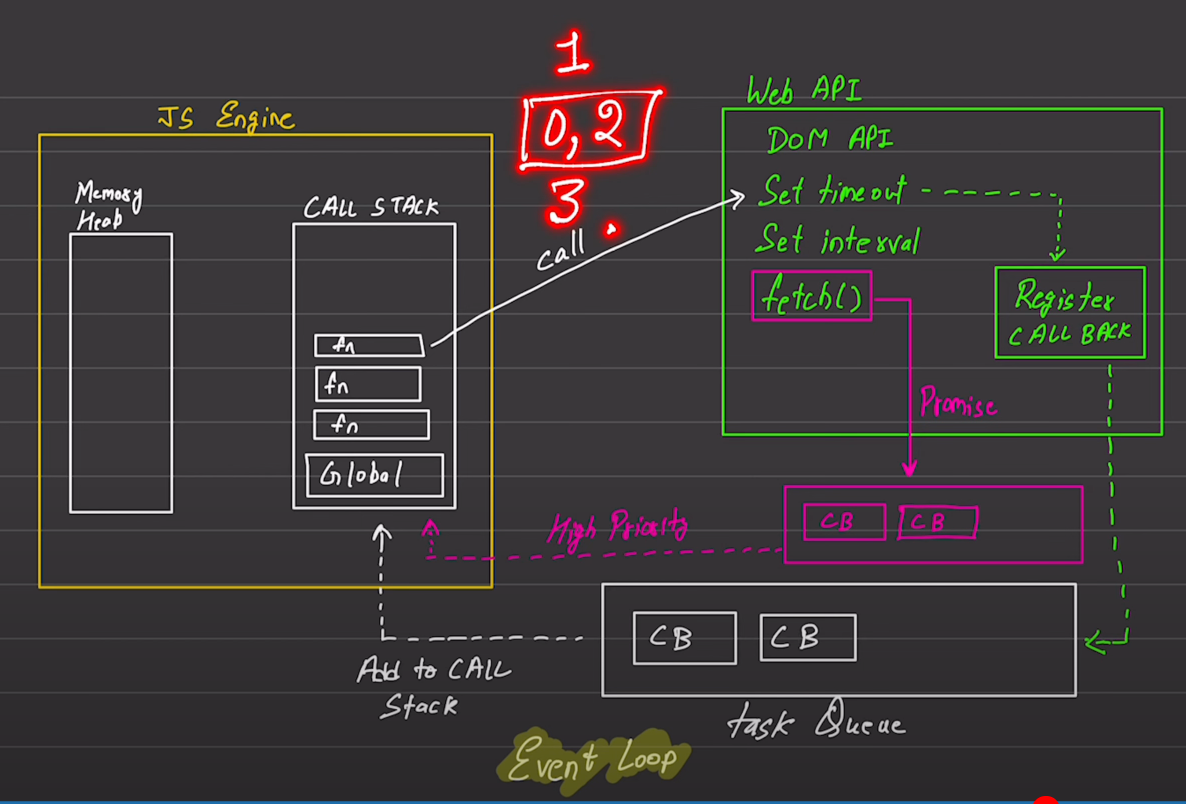 1
0, 2
3
JS Engine
Memory
Heap
CALL STACK
fn
fn
fn
Global
call
Web API
DOM API
Set timeout
Set interval
fetch()
Register
CALL BACK
Promise
High Priority
CB CB
CB CB
Add to CALL
Stack
task Queue
Event Loop